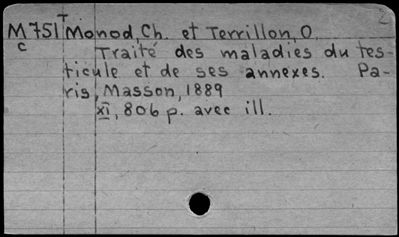 M751 Monod, Ch. et Terrillon, O.
c Traité des maladies du tes-
ticule et de ses annexes. Pa-
ris, Masson, 1889
xi, 806 p. avec ill.